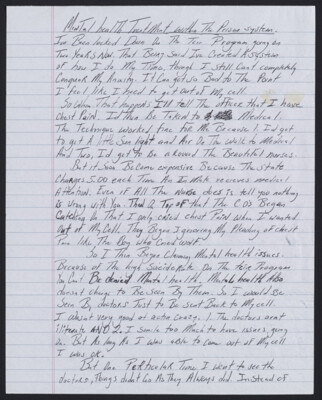 Mental health Treatment within The Prison system.
I've Been locked Down On The Tier Program going on
Two Years Now. That Being said I've Created A System
of how I do My Time, though I still Can't completely
Conquer My Anxiety. It Can get so Bad to The Point
I feel like I need to get out of My cell.
So when That happens I'll tell The officer that I have
chest Pain. I'd Then Be Taken to Medical.
The Technique worked fine for Me Because 1. I'd get
to get A little Sun light and Air On The Walk to Medical
And Two, I'd get to Be Around The Beautiful nurses.
But it soon Became expensive Because The state
Charges 5.00 each Time An In Mate receives medical
Attention. Even if All The Nurse does is tell you nothing
is wrong with You. That & Top of that The C.O's Began
Catching On That I only cried chest Pain when I wanted
out of My Cell. They Began Ignoring My Pleading of chest
Pain like The Boy who Cried wolf.
So I Then Began Claiming Mental health issues.
Because of The high Suicide Rate On The Tier Program
You Can't Be denied Mental health, Mental health also
doesn't charge To Be Seen By Them. So I would Be
Seen By doctors Just to Be Sent Back to My cell.
I wasn't very good at acting crazy. 1. The doctors aren't
illiterate AND 2. I smile too Much to have issues going
on. But As long As I was able to come out of My cell
I was ok.
But One Particular Time I went to see the
doctors, Things didn't Go As They Always did. Instead of